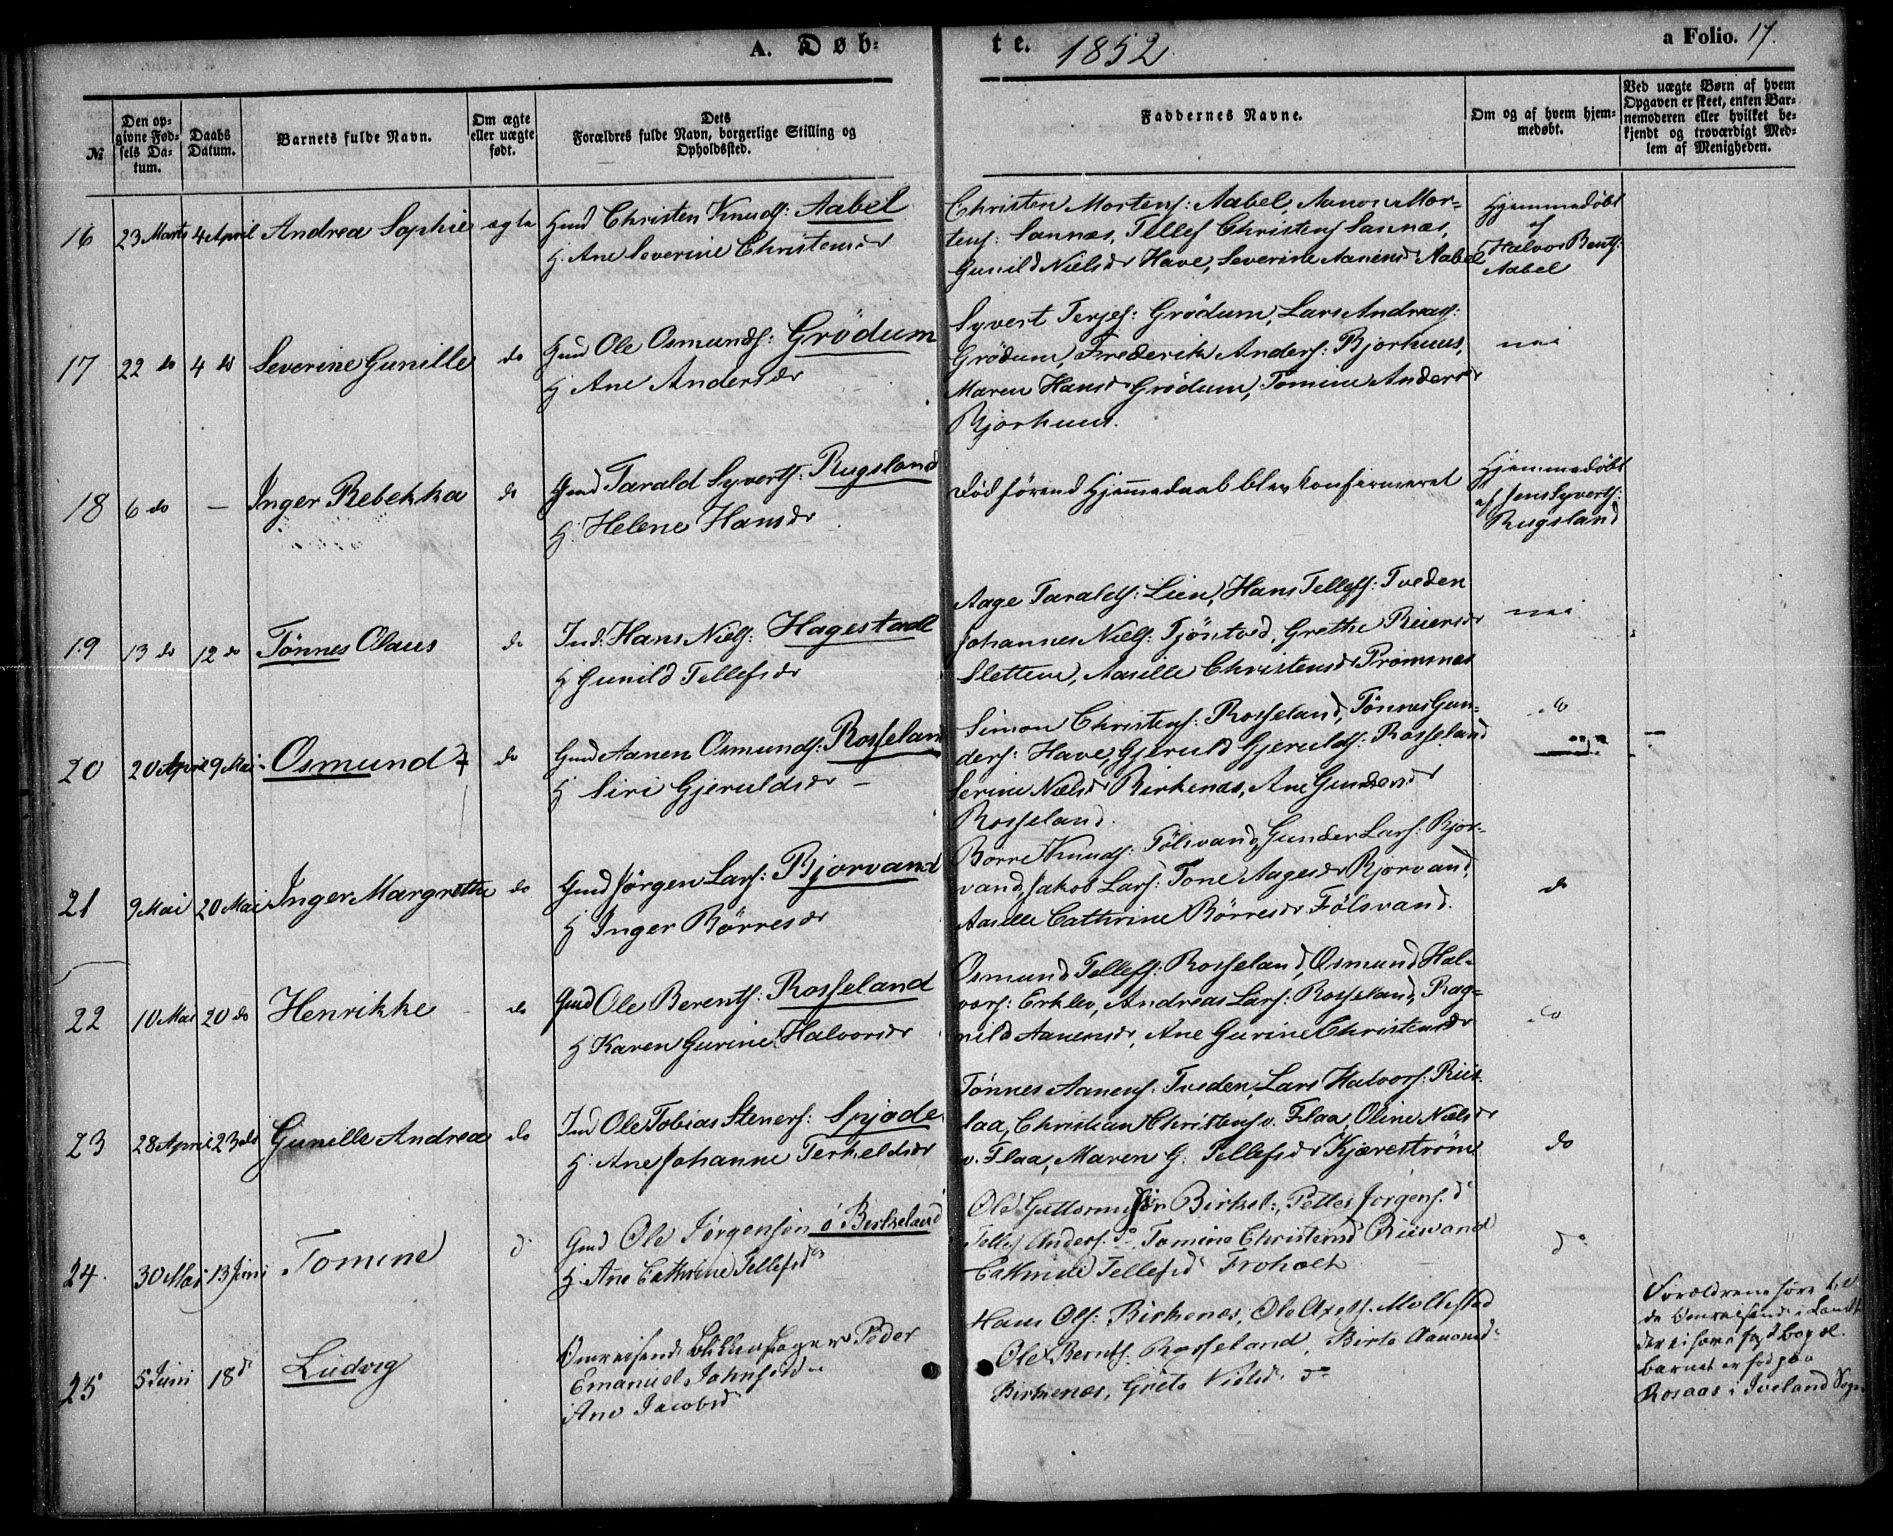 A. Døb-
te. 1852.
a Folio. 17.
№
Den op-
givne Fød-
sels Da-
tum.
Daabs
Datum.
Barnets fulde Navn.
Om ægte
eller uægte
født.
Dets
Forældres fulde Navn, borgerlige Stilling og
Opholdssted.
Faddernes Navne.
Om og af hvem hjem-
medøbt.
Ved uægte Børn af hvem
Opgaven er skeet, enten Bar-
nemoderen eller hvilket be-
kjendt og troværdigt Med-
lem af Menigheden.
16 23 Marts 4 April Andrea Sophie ægte
Gmd Christen Knuds: Aabel
H. Ane Severine Christensdr
Christen Mortens: Aabel, Aanon Mor-
tens: Sannæs, Tellef Christens Sannæs,
Gunild Nielsdr Have, Severine Aanensdr Aabel
Hjemmedøbt
af
Halvor Bents:
Aabel
17 22 do 4 do Severine Gunille do
Gmd Ole Osmunds: Grödum
H Ane Andersdr
Syvert Terjes: Grödum, Lars Andreas:
Grödum, Frederik Anders: Bjorhuus,
Maren Hansdr Grödum, Tomine Andersdr
Bjorhuus.
nei
18 6 do — Inger Rebekka do
Gmd Tarald Syverts: Rugsland
H. Helene Hansdr
Död förend Hjemmedaab blev konfirmeret
Hjemmedøbt
af Jens Syverts:
Rugsland
19 13 do 12 do Tönnes Olaus do
Ind: Hans Niels: Hagestad
H Gunild Tellefsdr
Aage Taralds: Lien, Hans Tellefs: Tveden
Johannes Niels: Tjöntved, Grethe Reiersdr
Sletten, Aasille Christensdr Tromsnes
nei
20 20 April 9 Mai Osmund do
Gmd Aanen Osmunds: Rosseland
H Siri Gjeruldsdr —
Simon Christens: Rosseland, Tönnes Gun-
ders: Have, Gjeruld Gjerulds: Rosseland
Serine Nielsdr Birkenæs, Ane Gundersdr
Rosseland.
do
21 9 Mai 20 Mai Inger Margrethe do
Gmd Jörgen Lars: Bjorvand
H Inger Börresdr
Borre Knuds: Fölsvand, Gunder Lars: Bjor-
vand, Jakob Lars: Tone Aagesdr Bjorvand,
Aasille Cathrine Börresdr Fölsvand.
do
22 10 Mai 20 do Henrikke do
Gmd Ole Berents: Rosseland
H Karen Gurine Halvorsdr
Osmund Tellefs: Rosseland, Osmund Hal-
vors: Erklev, Andreas Lars: Rosseland, Rag-
nild Aanensdr, Ane Gurine Christensdr
do
23 28 April 23 do Gunille Andrea do
Ind Ole Tobias Steners: Spjode
H. Ane Johanne Terkeldsdr
Tönnes Aanens: Tveden, Lars Halvors: Ris-
laa, Christian Christens v. Flaa, Oline Nielsdr
v. Flaa, Maren G. Tellefsdr Kjærestrøm
do
24. 30 Mai 13 Juni Tomine d.
Gmd Ole Jørgensøn ö Berkeland
H. Ane Cathrine Tellefsd
Ole Guttormsøn Birkel:, Petter Jørgens. do
Tellef Anders. do, Tomine Christensd Risvand
Cathrine Tellefsd Froholt
do
25 5 Juni 18 d Ludvig
Omreisende Blikkenslager Peder
Emanuel Johns
Ane Jacobsd
Hans Ols: Birkenæs, Ole Mollestad
Ole Bernts. Rosseland, Birte Aanonsd:
Birkenæs, Grete Nielsd. do
Forældrene føre
de Omreisende i Landet
Barnet er fød paa
Rosaas i Iveland Sogn